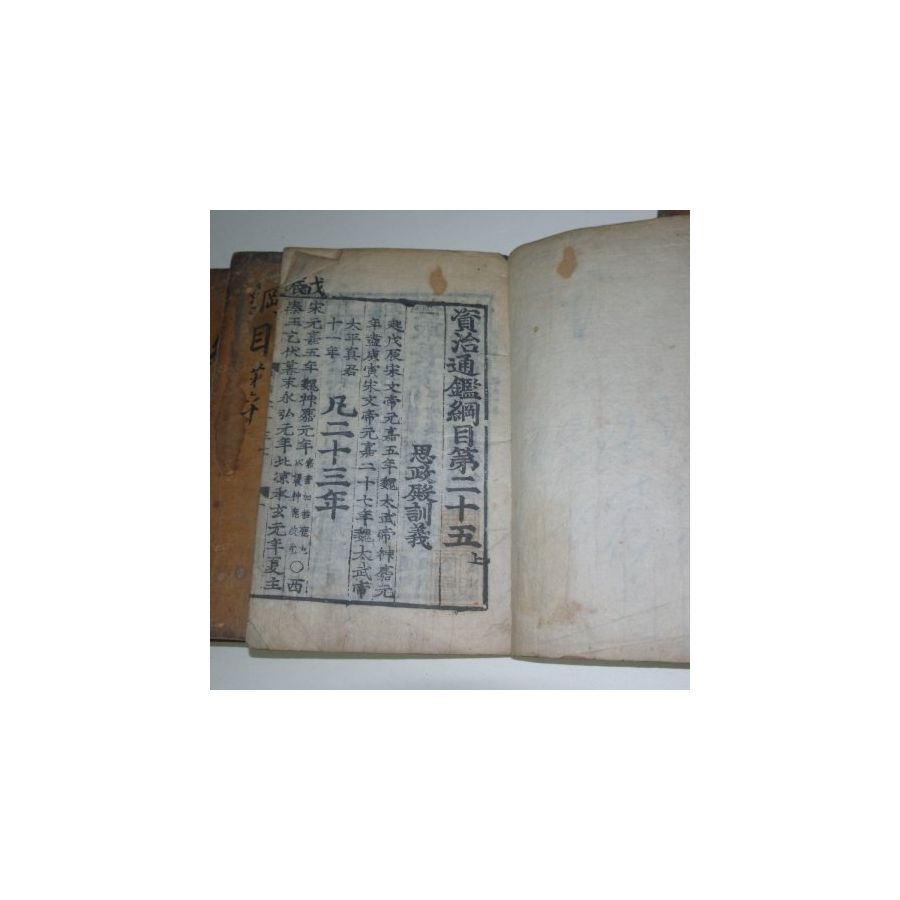 資治通鑑綱目第二十五上
思政殿訓義
起戊辰宋文帝元嘉五年魏太武帝神䴥元
年盡庚寅宋文帝元嘉二十七年魏太武帝
太平真君
十一年
凡二十三年
戊辰
宋元嘉五年魏神䴥元年
○西
秦王乞伏暮末永弘元年北涼承玄元年夏主
綱目